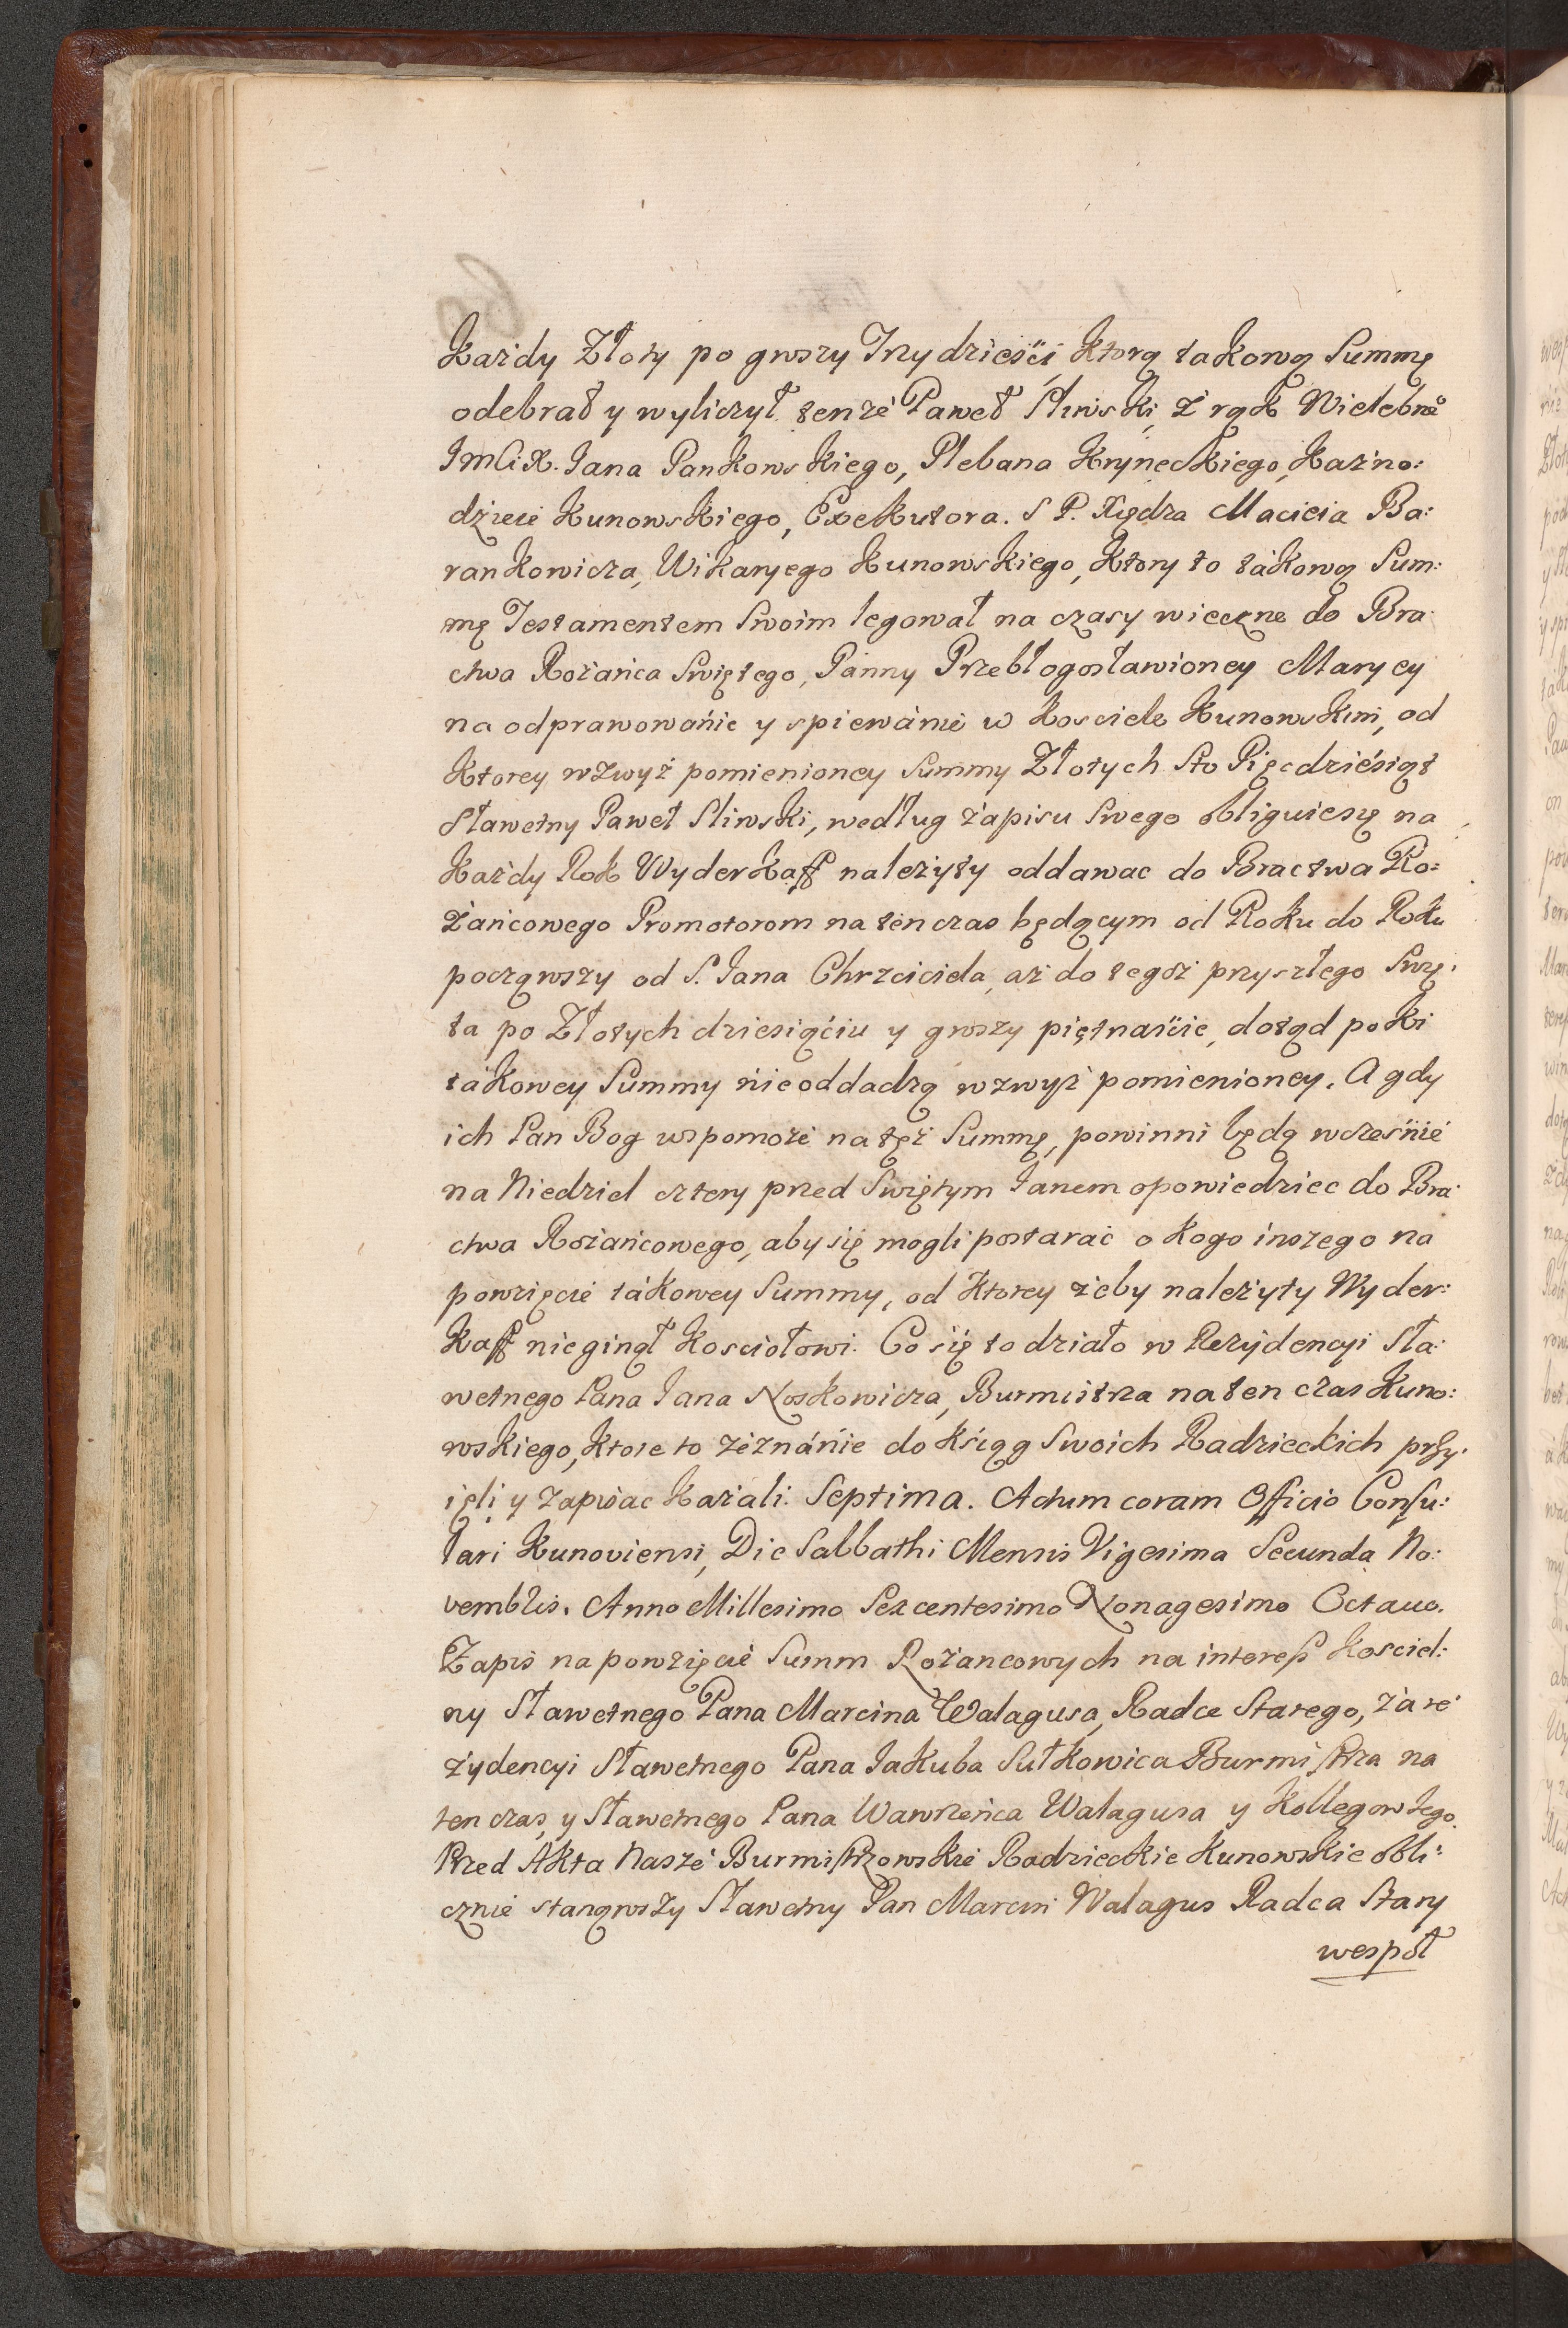 każdy Złoty po groszy Trzydzieści, ktorą takową Summę
odebrał y wyliczył tenże Paweł Sliwski, z rąk Wielebne°
JmCi X. Jana Pankowskiego, Plebana Kryneckiego, Kazno:
dzieie Kunowskiego, Exekutora. S P. Xiędza Macieia Ba:
rankowicza, Wikaryego Kunowskiego, ktory to takową Sum:
mę Testamentem Swoim legował na czasy wieczne do Bra
ctwa Rożańca Swiętego, Panny Przebłogosławioney Maryey
na odprawowánie y spiewánie w kosciele Kunowskim, od
ktorey wzwyż pomienioney Summy Złotych Sto Pięcdziesiąt
Sławetny Paweł Sliwski, według zapisu Swego obliguiesię na
każdy Rok Wyderkaff należyty oddawac do Bractwa Ro:
żańcowego Promotorom na tenczas będącym od Roku do Roku
począwszy od S. Jana Chrzciciela, aż do tegoż przyszłego Swię:
ta po Złotych dziesiąciu y groszy piętnaście, dotąd poki
takowey Summy nieoddadzą wzwyż pomienioney. A gdy
ich Pan Bog wspomoże na tęż Summę, powinni będą wcześnie
na Niedziel cztery przed Swiętym Janem opowiedziec do Bra
ctwa Rożańcowego, aby się mogli postarać o kogo inszego na
powzięcie tákowey Summy, od ktorey żeby należyty Wyder:
kaff nieginął kosciołowi. Co się to działo w Rezydencyi Sła:
wetnego Pana Jana Noskowicza, Burmistrza na ten czas Kuno:
wskiego, ktore to zéznánie do ksiąg Swoich Radzieckich przy:
ięli y zapisac kazali. Septima. Actum coram Officio Consu:
lari Kunoviensi, Die Sabbathi Mensis Vigesima Secunda No:
vembris. Anno Millesimo Sexcentesimo Nonagesimo Octauo.
Zapis na powzięcie Summ Rożancowych na interess kosciel:
ny Sławetnego Pana Marcina Walagusa, Radce Starego, za re
zydencyi Sławetnego Pana Jakuba Sułkowica Burmistrza na
ten czas, y Sławetnego Pana Wawrzeńca Walagusa y kollegow Jego.
Przed Akta Nasze Burmistrzowskie Radzieckie Kunowskie obli:
cznie stanąwszy Sławetny Pan Marcin Walagus Radca Stary
wespoł